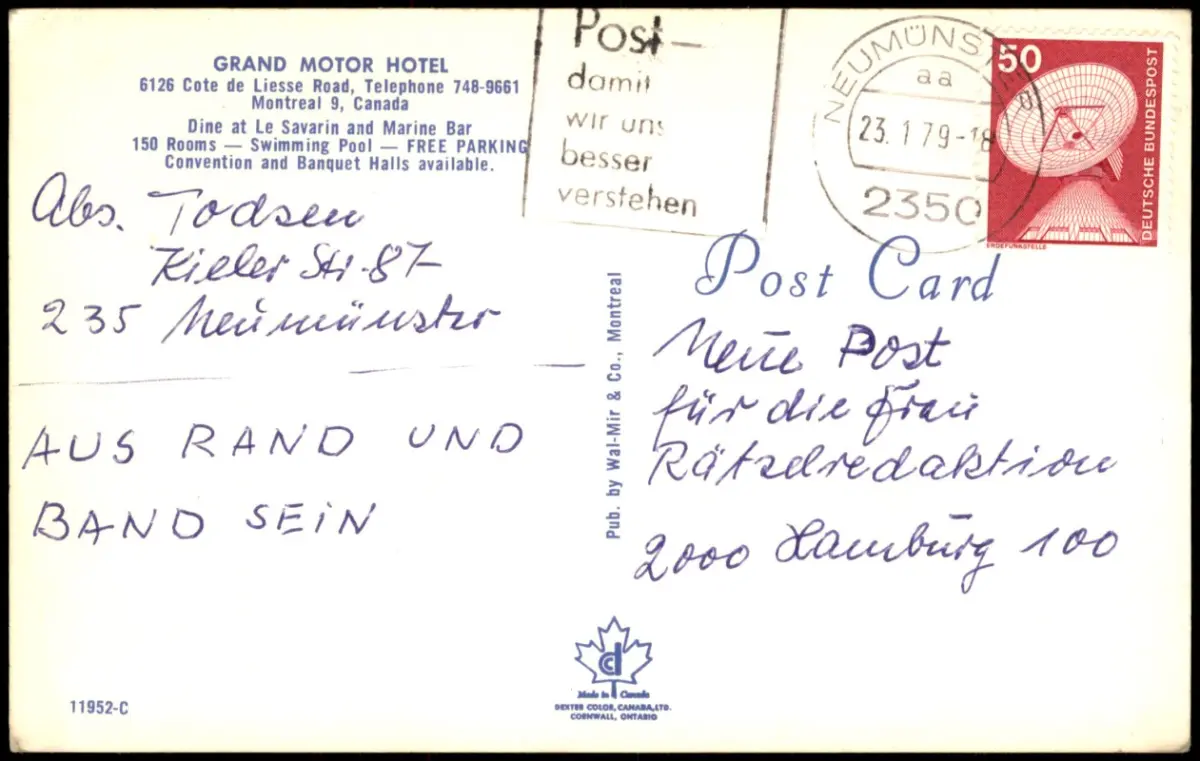 GRAND MOTOR HOTEL
6126 Cote de Liesse Road, Telephone 748-9661
Montreal 9, Canada
Dine at Le Savarin and Marine Bar
150 Rooms — Swimming Pool — FREE PARKING
Convention and Banquet Halls available.
Post—
damit
wir uns
besser
verstehen
NEUMÜNST
aa
23.1.79-18
2350
50
DEUTSCHE BUNDESPOST
ERDEFUNKSTELLE
Abs. Todsen
Kieler Str. 87
235 Neumünster
AUS RAND UND
BAND SEIN
Pub. by Wal-Mir & Co., Montreal
Post Card
Neue Post
für die Frau
Rätselredaktion
2000 Hamburg 100
11952-C
cd
Made in Canada
DEXTER COLOR, CANADA, LTD.
CORNWALL, ONTARIO